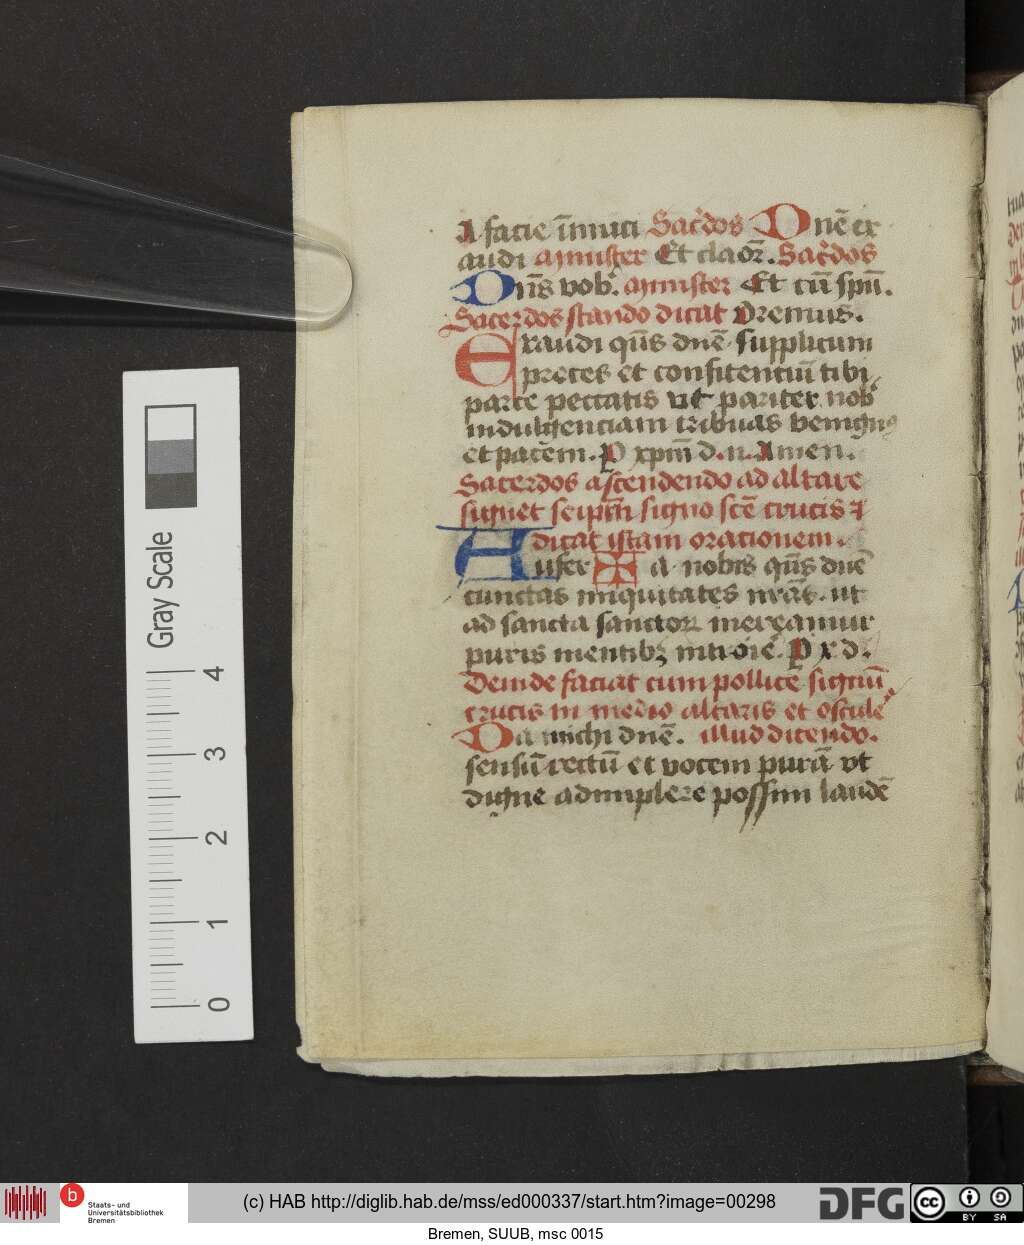 A facie inimici Sac̄dos Dn̄e ex
audi Minister Et claōr. Sac̄dos
Dn̄s vob. Minister Et cū spū.
Sacerdos stando dicat Oremus.
Exaudi qūs dn̄e supplicum
preces et confitentiū tibi
parce peccatis ut pariter nob
indulgenciam tribuas benignus
et pacēm. P xpm̄ d. n. Amen.
Sacerdos ascendendo ad altare
signet seipm̄ signo scē crucis ⁊
dicat istam orationem.
Aufer ✠ a nobis qūs dn̄e
cunctas iniquitates nrās. ut
ad sancta sanctoꝝ mereamur
puris mentibꝫ introire. P x d.
Deinde faciat cum pollice signū
crucis in medio altaris et oscule
Da michi dn̄e. illud dicendo.
sensū rectū et vocem purā vt
digne adimplere possim laudē
Gray Scale
4
3
2
1
0
b
Staats- und
Universitätsbibliothek
Bremen
(c) HAB http://diglib.hab.de/mss/ed000337/start.htm?image=00298
DFG
cc BY SA
Bremen, SUUB, msc 0015